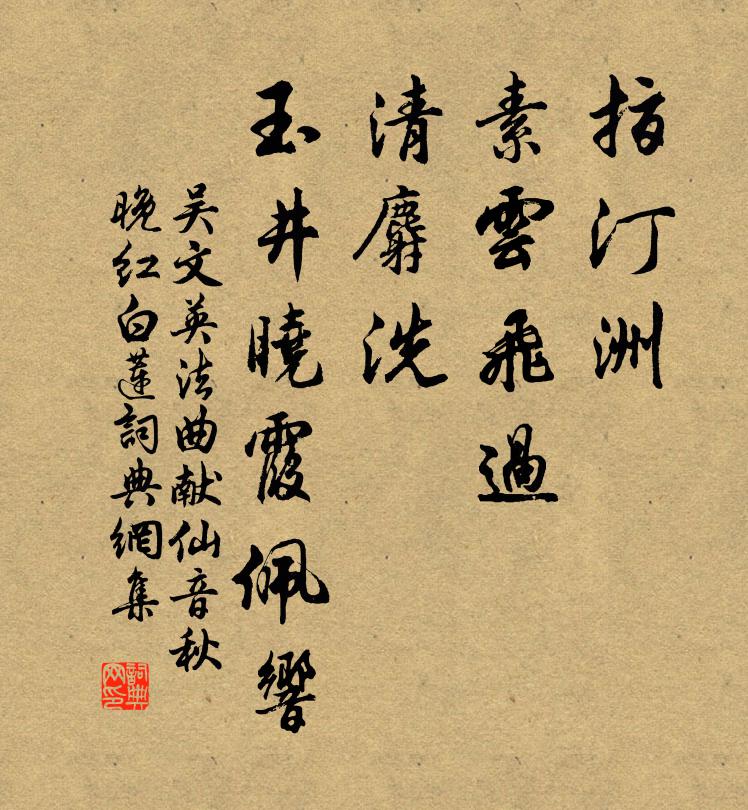 指汀洲
素雲飛過
清麝洗
玉井曉霞佩響
吴文英法曲献仙音秋
晚红白蓮詞典網集
詞典
网印